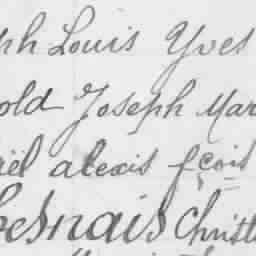 ph Louis Yves
old Joseph Mar
iël alexis fçois
esnais Christ